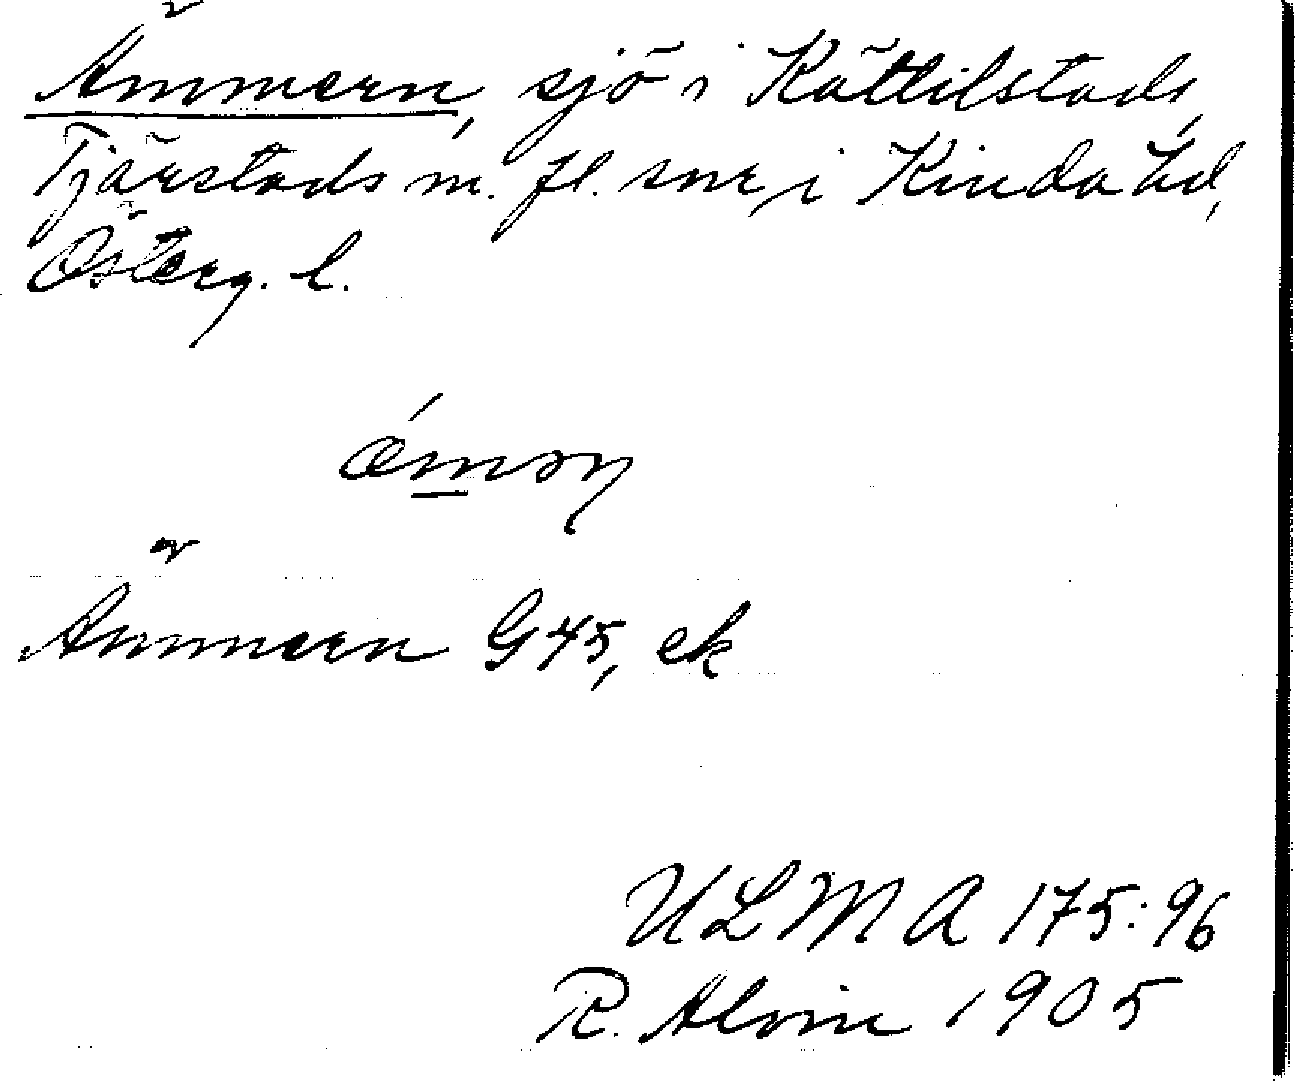 Ämmern, sjö i Kättilstads,
Tjärstads m. fl. snr, i Kinda hd,
Österg. l.
Ämmern G45, ek
ULMA 175:96
R. Alvin 1905